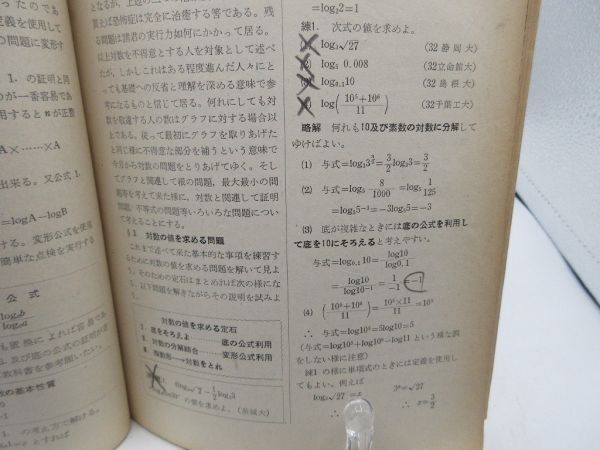 =log₂2=1
練1. 次式の値を求めよ。
log₃√27 (32 静岡大)
log₅ 0.008 (32立命館大)
log₀.₁10 (32 島根大)
log(10⁵+10⁶/11) (32千葉工大)
略解 何れも10及び素数の対数に分解して
ゆけばよい。
(1) 与式=log₃3^(3/2)=3/2log₃3=3/2
(2) 与式=log₅ 8/1000 =log₅ 1/125
=log₅5⁻³=-3log₅5=-3
(3) 底が複雑なときには底の公式を利用し
て底を10にそろえると考えやすい。
与式=log₀.₁10=log10/log0.1
=log10/log10⁻¹=1/-1=-1
(4) (10⁵+10⁶/11)=10⁵×11/11=10⁵
∴ 与式=log10⁵=5log10=5
(与式=log10⁵+log10⁶-log11という様な誤
をしない様に注意)
練1の様に単項式のときには定義を使用し
てもよい。例えば
log₃√27=x 3ˣ=√27
∴ x=3/2
質え恐怖症は完全に治癒する筈である。残
る問題は諸君の実行力如何にかかって居る。
以上対数を不得意とする人を対象として述べ
たが、しかしこれはある程度進んだ人々にと
っても基礎への反省と理解を深める意味で参
考になるものと信じて居る。何れにしても対
数を敬遠する人の数はグラフに対する場合以
上である。従って最初にグラフを取りあげた
と同じ様に不得意な部分を補うという意味で
今月から対数の問題をとりあげてゆく。そし
てグラフと関連して根の問題、最大最小の問
題等を考えて来た様に、対数と関連して証明
問題、不等式の問題等いろいろな問題につい
て考えることにする。
§1 対数の値を求める問題
これまで述べて来た基本的な事項を練習す
るために対数の値を求める問題を解いて見よ
う。そのための定石はまとめれば次の様にな
る。以下問題を解きながらその説明を試みよ
対数の値を求める定石
底をそろえよ 底の公式利用
対数の分解結合 変形公式利用
指数形→対数をとれ
の値を求めよ。(茨城大)
義を使用して
の問題に変形す
1. の証明と同
のが一番容易であ
用するとnが正数
A×……×A
出来る。又公式1.
=logA-logB
ける。変形公式を使
簡単な点検を実行する
公式
及び底の公式の証明が
教科書を参考願いたい。
数の基本性質
1. の考え方で解ける。
とすれば